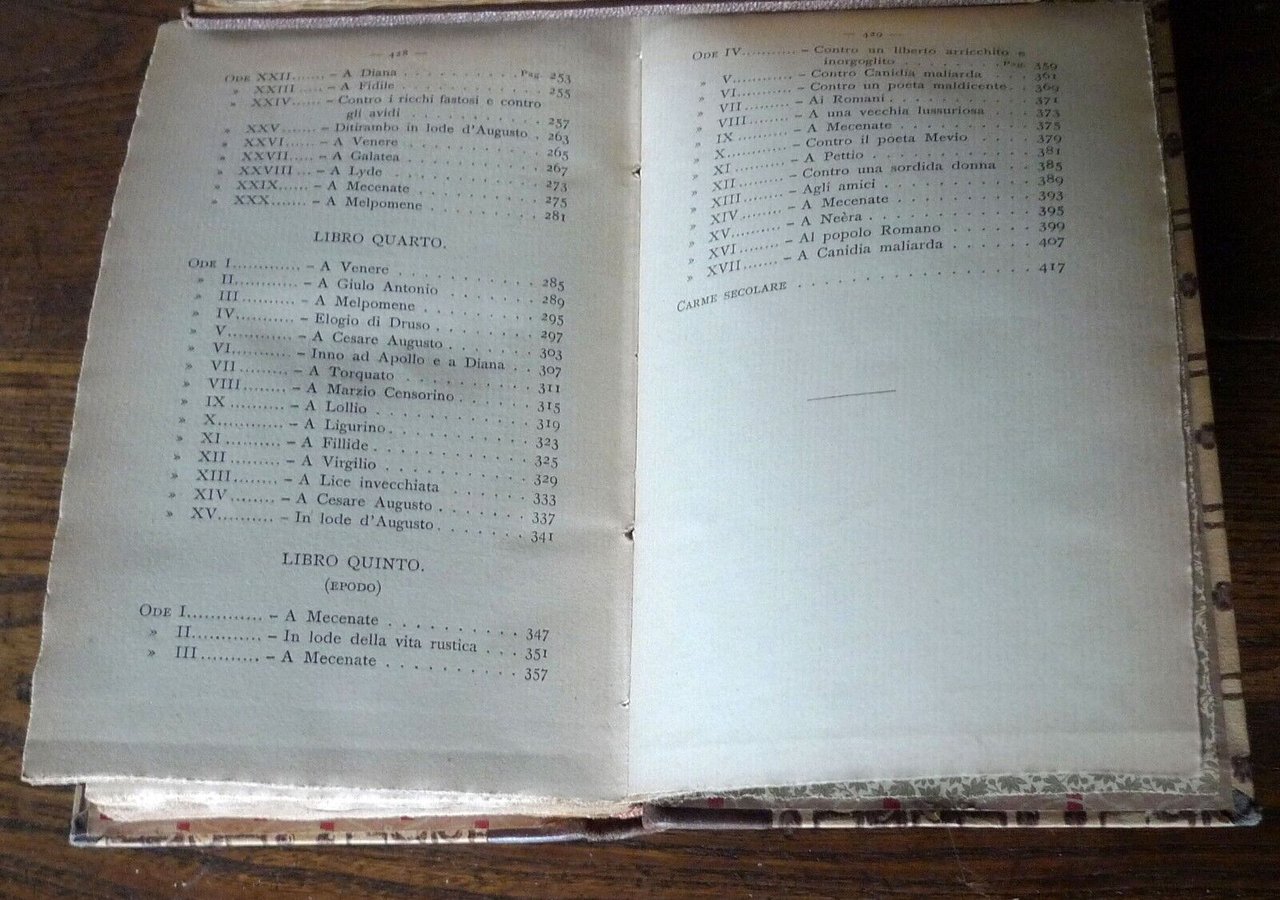 — 428 —
ODE XXII....... – A Diana . . . . . . . . . . Pag. 253
» XXIII ...... – A Fidile . . . . . . . . . . 255
» XXIV ...... – Contro i ricchi fastosi e contro
gli avidi . . . . . . . . . . 257
» XXV ....... – Ditirambo in lode d'Augusto . 263
» XXVI ...... – A Venere . . . . . . . . . . 265
» XXVII ..... – A Galatea . . . . . . . . . 267
» XXVIII .... – A Lyde . . . . . . . . . . 273
» XXIX...... – A Mecenate . . . . . . . . . 275
» XXX....... – A Melpomene . . . . . . . . 281
LIBRO QUARTO.
ODE I............ – A Venere . . . . . . . . . . 285
» II........... – A Giulo Antonio . . . . . . . 289
» III .......... – A Melpomene . . . . . . . . 295
» IV........... – Elogio di Druso . . . . . . . 297
» V............ – A Cesare Augusto . . . . . . 303
» VI........... – Inno ad Apollo e a Diana . . 307
» VII ......... – A Torquato . . . . . . . . . 311
» VIII ........ – A Marzio Censorino . . . . . 315
» IX .......... – A Lollio . . . . . . . . . . 319
» X............ – A Ligurino . . . . . . . . . 323
» XI .......... – A Fillide . . . . . . . . . . 325
» XII ......... – A Virgilio . . . . . . . . . 329
» XIII........ – A Lice invecchiata . . . . . . 333
» XIV ........ – A Cesare Augusto . . . . . . 337
» XV.......... – In lode d'Augusto . . . . . . 341
LIBRO QUINTO.
(EPODO)
ODE I............ – A Mecenate . . . . . . . . . 347
» II........... – In lode della vita rustica . . . 351
» III .......... – A Mecenate . . . . . . . . . 357
— 429 —
ODE IV.......... – Contro un liberto arricchito e
inorgoglito . . . . . . Pag. 359
» V............ – Contro Canidia maliarda . . . 361
» VI........... – Contro un poeta maldicente . . 369
» VII ......... – Ai Romani . . . . . . . . . 371
» VIII ........ – A una vecchia lussuriosa . . . 373
» IX .......... – A Mecenate . . . . . . . . . 375
» X............ – Contro il poeta Mevio . . . . 379
» XI .......... – A Pettio . . . . . . . . . . 381
» XII ......... – Contro una sordida donna . . 385
» XIII........ – Agli amici . . . . . . . . . 389
» XIV ........ – A Mecenate . . . . . . . . . 393
» XV.......... – A Neèra . . . . . . . . . . 395
» XVI ........ – Al popolo Romano . . . . . . 399
» XVII....... – A Canidia maliarda . . . . . . 407
CARME SECOLARE . . . . . . . . . . . . . . 417